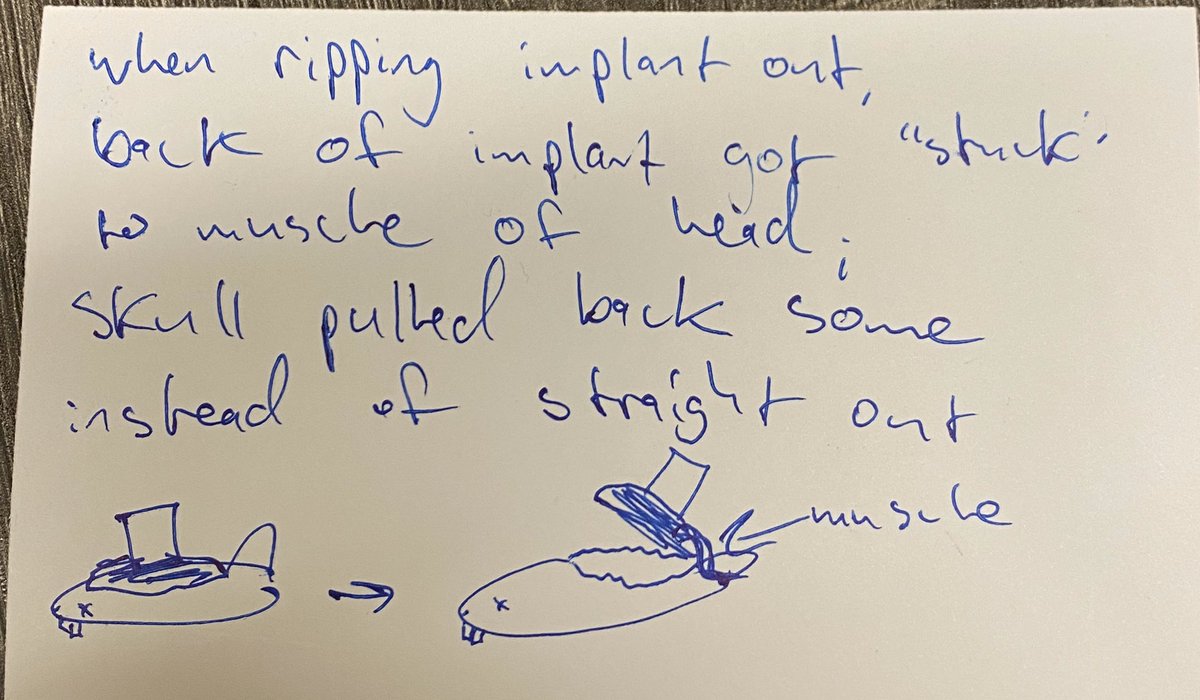 when ripping implant out,
back of implant got "stuck"
to muscle of head;
skull pulled back some
instead of straight out
muscle